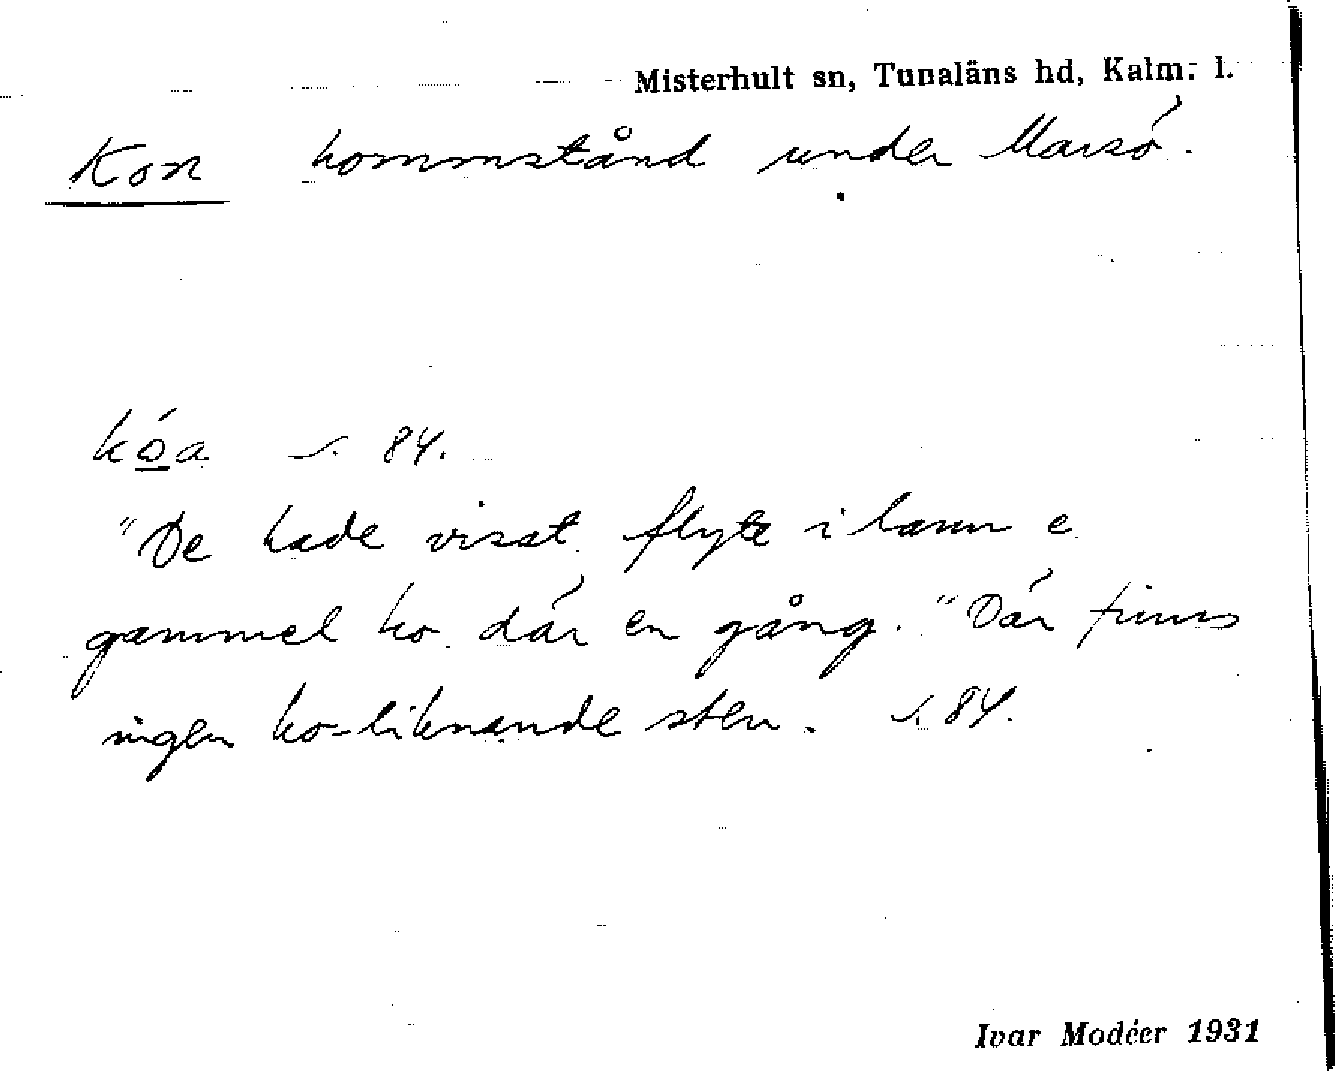 Misterhult sn, Tunaläns hd, Kalm. l.
Kon hommstånd under Marsö.
kóa s. 84.
"De hade visst flyte i lann e
gammel ko där en gång." Där finns
ingen ko-liknande sten. s. 84.
Ivar Modéer 1931